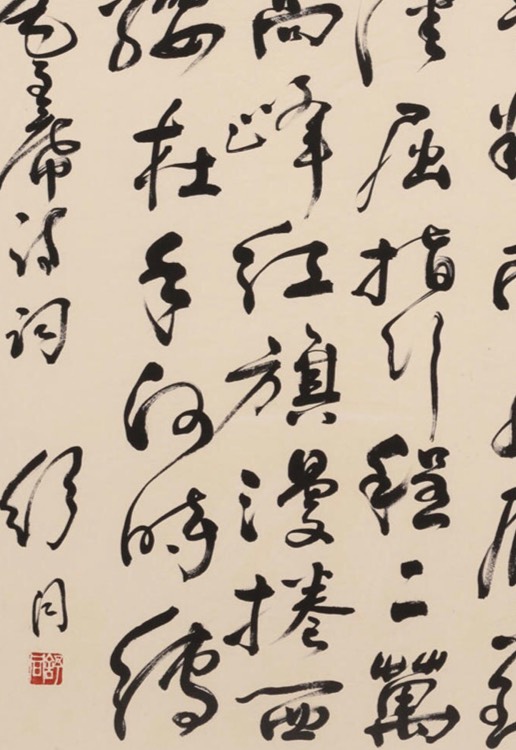 漢屈指行程二萬
高峰紅旗漫捲西
纓在手何時縛
毛主席詩詞
舒同
舒同